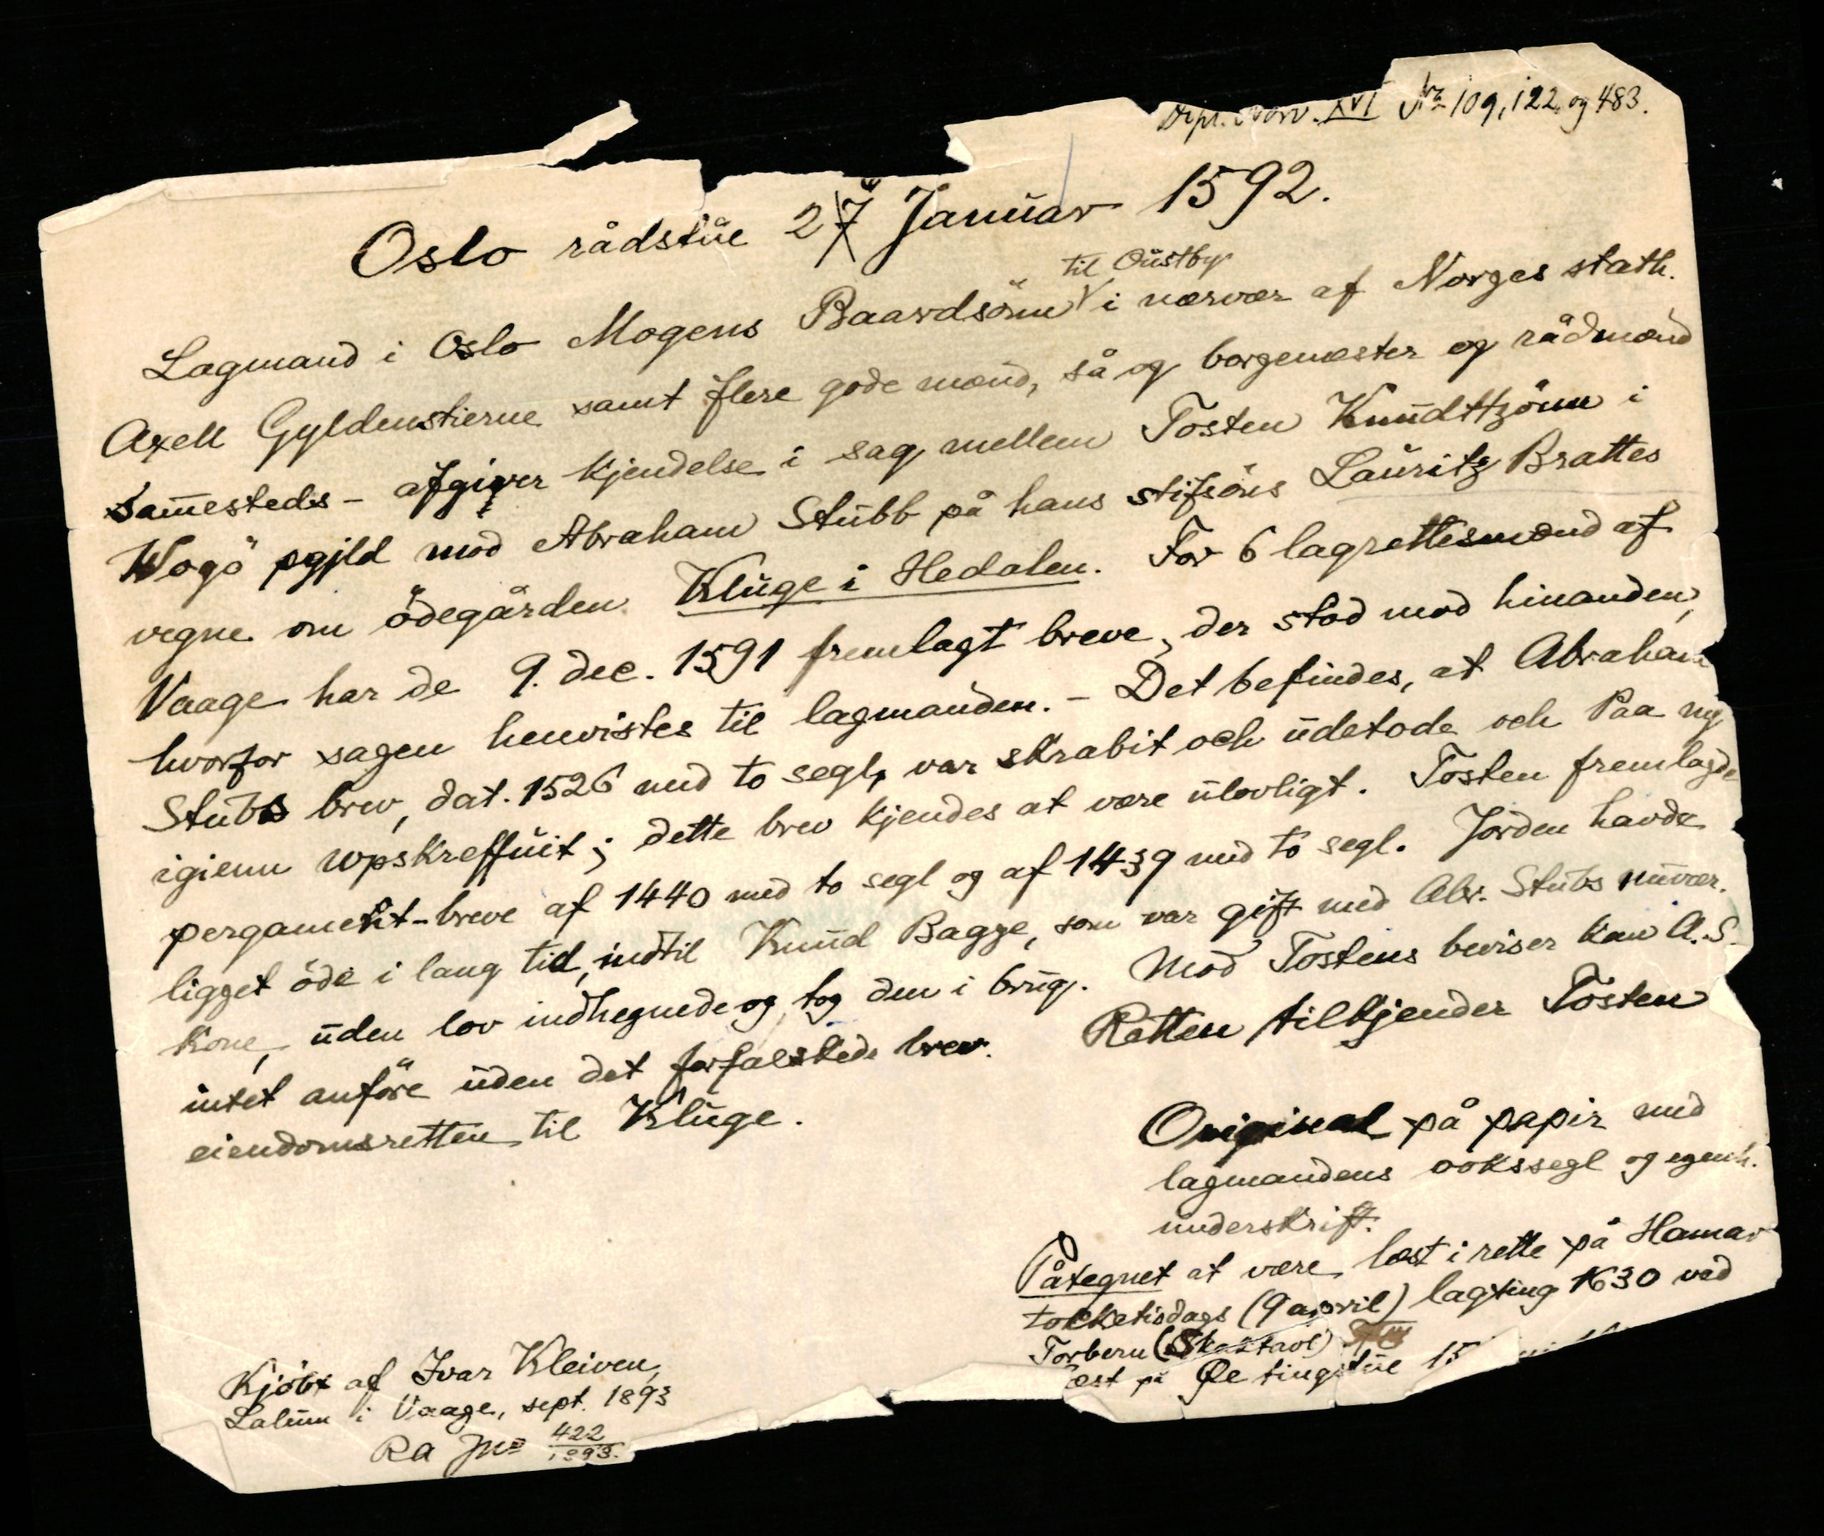 Dipl. Norv. XVI No 109, 122, og 483.
Oslo rådstue 27 Januar 1592.
til Oustby
Lagmand i Oslo Mogens Baardsönn i nærvær af Norges stath.
Axell Gyldenstierne samt flere gode mænd, så og borgemester og rådmænd
sammesteds – afgiver kjendelse i sag mellem Tosten Knudttzönn i
Wogö pgjld mod Abraham Stubb på hans stifsöns Lauritz Brattes
vegne om ödegården Kluge i Hedalen. For 6 lagrettesmænd af
Vaage har de 9. dec. 1591 fremlagt breve, der stod mod hinanden,
hvorfor sagen henvistes til lagmanden. – Det befindes, at Abraham
Stubs brev, dat. 1526 med to segl, var skrabit och udetode och Paa ny
igienn wpskreffuit; dette brev kjendes at være ulovligt. Tosten fremlagde
pergament-breve af 1440 med to segl og af 1439 med to segl. Jorden havde
ligget öde i lang tid, indtil Knud Bagge, som var gift med Abr. Stubs nuvær.
kone, uden lov indhegnede og tog den i brug. Mod Tostens beviser kan A.S.
intet anföre uden det forfalskede brev. Retten tilkjender Tosten
eiendomsretten til Kluge.
Original på papir med
lagmandens vokssegl og egenh.
underskrift.
Påtegnet at være læst i rette på Hamar
tolketisdags (9 april) lagting 1630 ved
Torbern (Skaktavl)
læst på Øe tingstue 15
Kjöbt af Ivar Kleiven,
Lalum i Vaage, sept. 1893
RA Jno 422/1893.